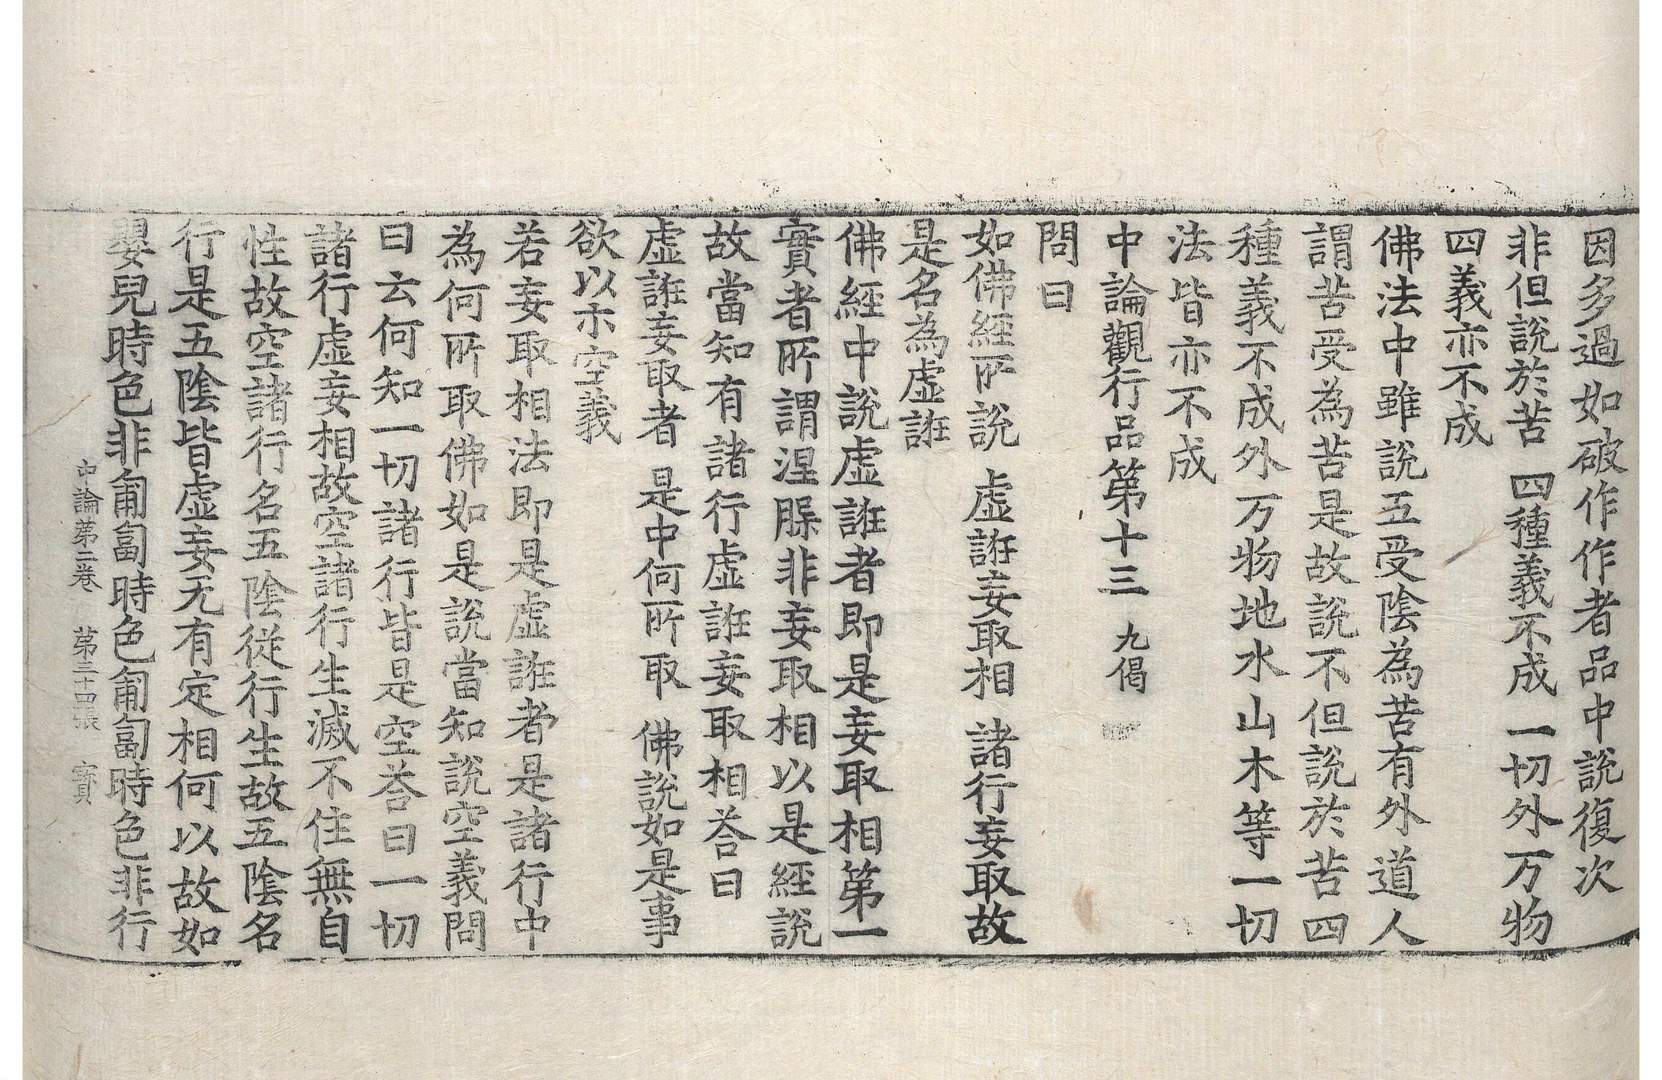 因多過如破作作者品中說復次
非但說於苦 四種義不成 一切外万物
四義亦不成
佛法中雖說五受陰為苦有外道人
謂苦受為苦是故說不但說於苦四
種義不成外万物地水山木等一切
法皆亦不成
中論觀行品第十三 九偈
問曰
如佛經所說 虛誑妄取相 諸行妄取故
是名為虛誑
佛經中說虛誑者即是妄取相第一
實者所謂涅槃非妄取相以是經說
故當知有諸行虛誑妄取相荅曰
虛誑妄取者 是中何所取 佛說如是事
欲以示空義
若妄取相法即是虛誑者是諸行中
為何所取佛如是說當知說空義問
曰云何知一切諸行皆是空荅曰一切
諸行虛妄相故空諸行生滅不住無自
性故空諸行名五陰從行生故五陰名
行是五陰皆虛妄无有定相何以故如
嬰兒時色非匍匐時色匍匐時色非行
中論第二卷 第三十四張 寶